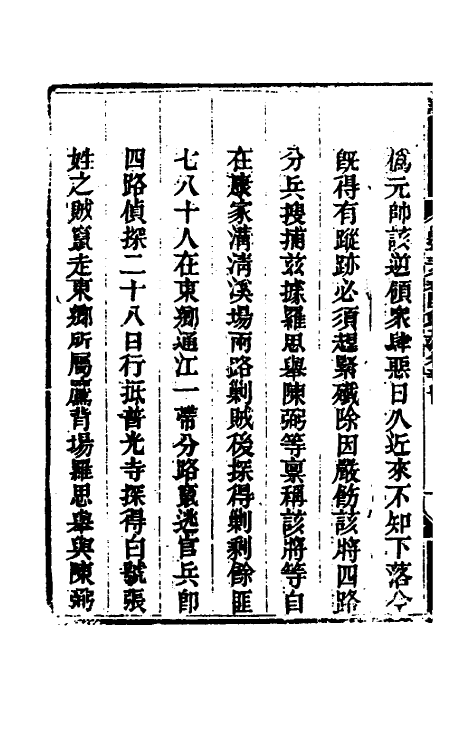 僞元帥該逆顧家肆惡日久近來不知下落今
旣得有蹤跡必須趕緊殲除因嚴飭該將四路
分兵搜捕茲據羅思舉陳弼等禀稱該將等自
在康家溝淸溪場兩路剿賊後探得剿剩餘匪
七八十人在東鄉通江一帶分路竄逃官兵卽
四路偵探二十八日行抵普光寺探得白號張
姓之賊竄走東鄉所屬廬背場羅思舉與陳弼